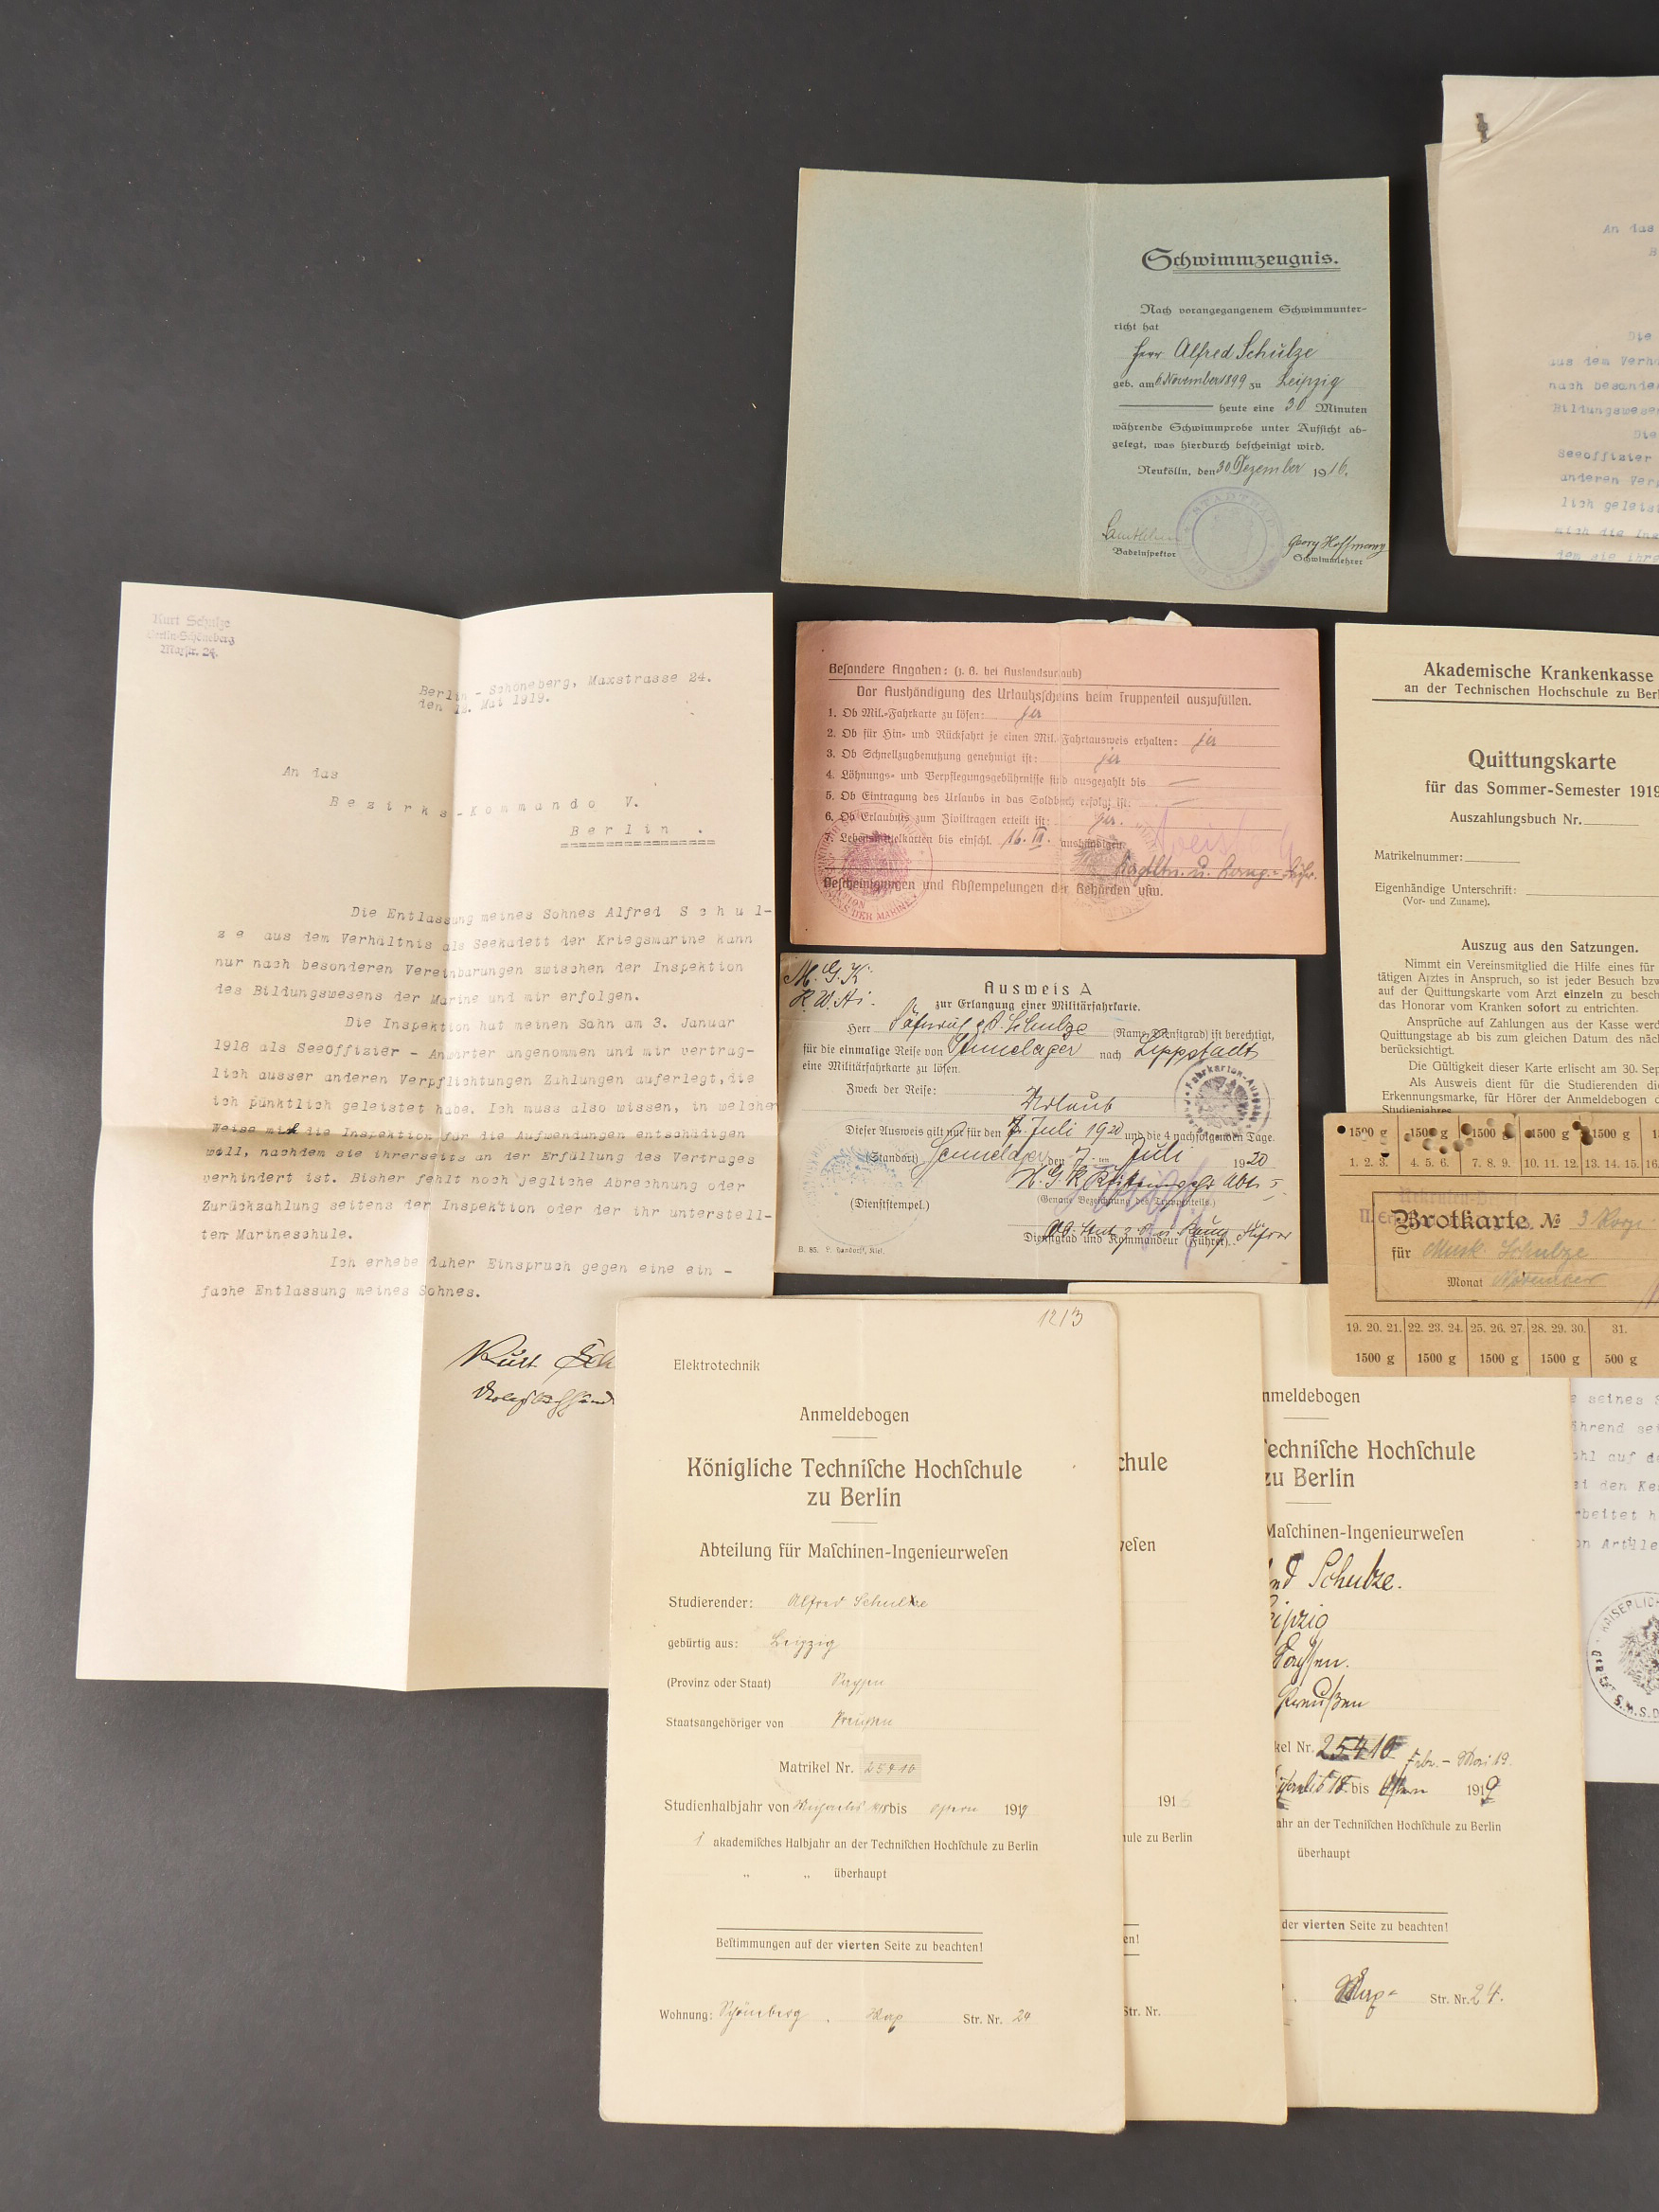 Schwimmzeugnis.
Nach vorangegangenem Schwimmunter-
richt hat
Herr Alfred Schulze
geb. am 6. November 1899 zu Leipzig
heute eine 30 Minuten
währende Schwimmprobe unter Aufsicht ab-
gelegt, was hierdurch bescheinigt wird.
Neukölln, den 30 Dezember 1916.
STADTBAD
Badeinspektor
Georg Hoffmann
Schwimmlehrer
An das
Die
aus dem Verhä
nach besonder
Bildungswesen
Die
Seeoffizier
anderen Verp
lich geleist
mich die Ins
dem sie ihre
Kurt Schulze
Berlin-Schöneberg
Maxstr. 24.
Berlin - Schöneberg, Maxstrasse 24.
den 1 . Mai 1919.
An das
Bezirks-Kommando V.
Berlin .
Die Entlassung meines Sohnes Alfred Schul-
ze aus dem Verhältnis als Seekadett der Kriegsmarine kann
nur nach besonderen Vereinbarungen zwischen der Inspektion
des Bildungswesens der Marine und mir erfolgen.
Die Inspektion hat meinen Sohn am 3. Januar
1918 als Seeoffizier - Anwärter angenommen und mir vertrag-
lich ausser anderen Verpflichtungen Zahlungen auferlegt,die
ich pünktlich geleistet habe. Ich muss also wissen, in welcher
Weise mich die Inspektion für die Aufwendungen entschädigen
will, nachdem sie ihrerseits an der Erfüllung des Vertrages
verhindert ist. Bisher fehlt noch jegliche Abrechnung oder
Zurückzahlung seitens der Inspektion oder der ihr unterstell-
ten Marineschule.
Ich erhebe daher Einspruch gegen eine ein -
fache Entlassung meines Sohnes.
Kurt Sch
Besondere Angaben: (z. B. bei Auslandsurlaub)
Vor Aushändigung des Urlaubsscheins beim Truppenteil auszufüllen.
1. Ob Mil.-Fahrkarte zu lösen: ja
2. Ob für Hin- und Rückfahrt je einen Mil.-Fahrtausweis erhalten: ja
3. Ob Schnellzugbenutzung genehmigt ist: ja
4. Löhnungs- und Verpflegungsgebührnisse sind ausgezahlt bis —
5. Ob Eintragung des Urlaubs in das Soldbuch erfolgt ist: —
6. Ob Erlaubnis zum Ziviltragen erteilt ist: ja.
7. Lebensmittelkarten bis einschl. 16. III. aushändigen
Bescheinigungen und Abstempelungen der Behörden usw.
M. G. K.
Ausweis A
zur Erlangung einer Militärfahrkarte.
Herr Schulze (Name, Dienstgrad) ist berechtigt,
für die einmalige Reise von Sennelager nach Lippstadt
eine Militärfahrkarte zu lösen.
Zweck der Reise: Urlaub
Dieser Ausweis gilt nur für den 7. Juli 1920 und die 4 nachfolgenden Tage.
(Standort) Sennelager, den 7 ten Juli 1920
(Genaue Bezeichnung des Truppenteils.)
(Dienststempel.)
Dienstgrad und Kommandeur (Führer).
B. 85. L. Handorff, Kiel.
Akademische Krankenkasse
an der Technischen Hochschule zu Berl
Quittungskarte
für das Sommer-Semester 1919
Auszahlungsbuch Nr.
Matrikelnummer:
Eigenhändige Unterschrift:
(Vor- und Zuname).
Auszug aus den Satzungen.
Nimmt ein Vereinsmitglied die Hilfe eines für
tätigen Arztes in Anspruch, so ist jeder Besuch bzw
auf der Quittungskarte vom Arzt einzeln zu besch
das Honorar vom Kranken sofort zu entrichten.
Ansprüche auf Zahlungen aus der Kasse werd
Quittungstage ab bis zum gleichen Datum des näch
berücksichtigt.
Die Gültigkeit dieser Karte erlischt am 30. Sep
Als Ausweis dient für die Studierenden die
Erkennungsmarke, für Hörer der Anmeldebogen d
Studienjahres
1500 g 1500 g 1500 g 1500 g 1500 g
1. 2. 3. 4. 5. 6. 7. 8. 9. 10. 11. 12. 13. 14. 15. 16.
Brotkarte № 3
für Musk. Schulze
Monat November
19. 20. 21. 22. 23. 24. 25. 26. 27. 28. 29. 30. 31.
1500 g 1500 g 1500 g 1500 g 500 g
1213
Elektrotechnik
Anmeldebogen
Königliche Technische Hochschule
zu Berlin
Abteilung für Maschinen-Ingenieurwesen
Studierender: Alfred Schulze
gebürtig aus: Leipzig
(Provinz oder Staat) Sachsen
Staatsangehöriger von Preußen
Matrikel Nr. 25410
Studienhalbjahr von Michaelis 1918 bis Ostern 1919
1 akademisches Halbjahr an der Technischen Hochschule zu Berlin
„ „ überhaupt
Bestimmungen auf der vierten Seite zu beachten!
Wohnung: Schöneberg, Max Str. Nr. 24
chule
wesen
191
hule zu Berlin
en!
Str. Nr.
nmeldebogen
Technische Hochschule
zu Berlin
Maschinen-Ingenieurwesen
Schulze.
eipzig
Sachsen.
Preußen
kel Nr. 25410 Febr. - Mai 19.
bis Ostern 1919
ahr an der Technischen Hochschule zu Berlin
überhaupt
der vierten Seite zu beachten!
Max- Str. Nr. 24.
seines S
ährend sei
ohl auf de
ei den Ke
rbeitet h
on Artille
KAISERLICH
S.M.S.D